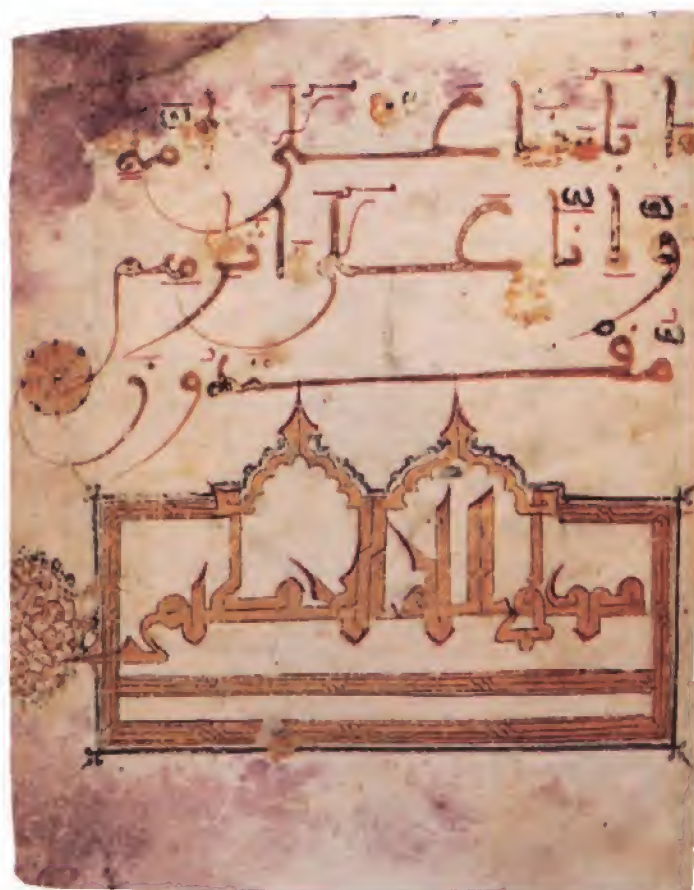 نا اباءنا على امة
وانا على اثرهم
مقتدون
صدق الله العظيم